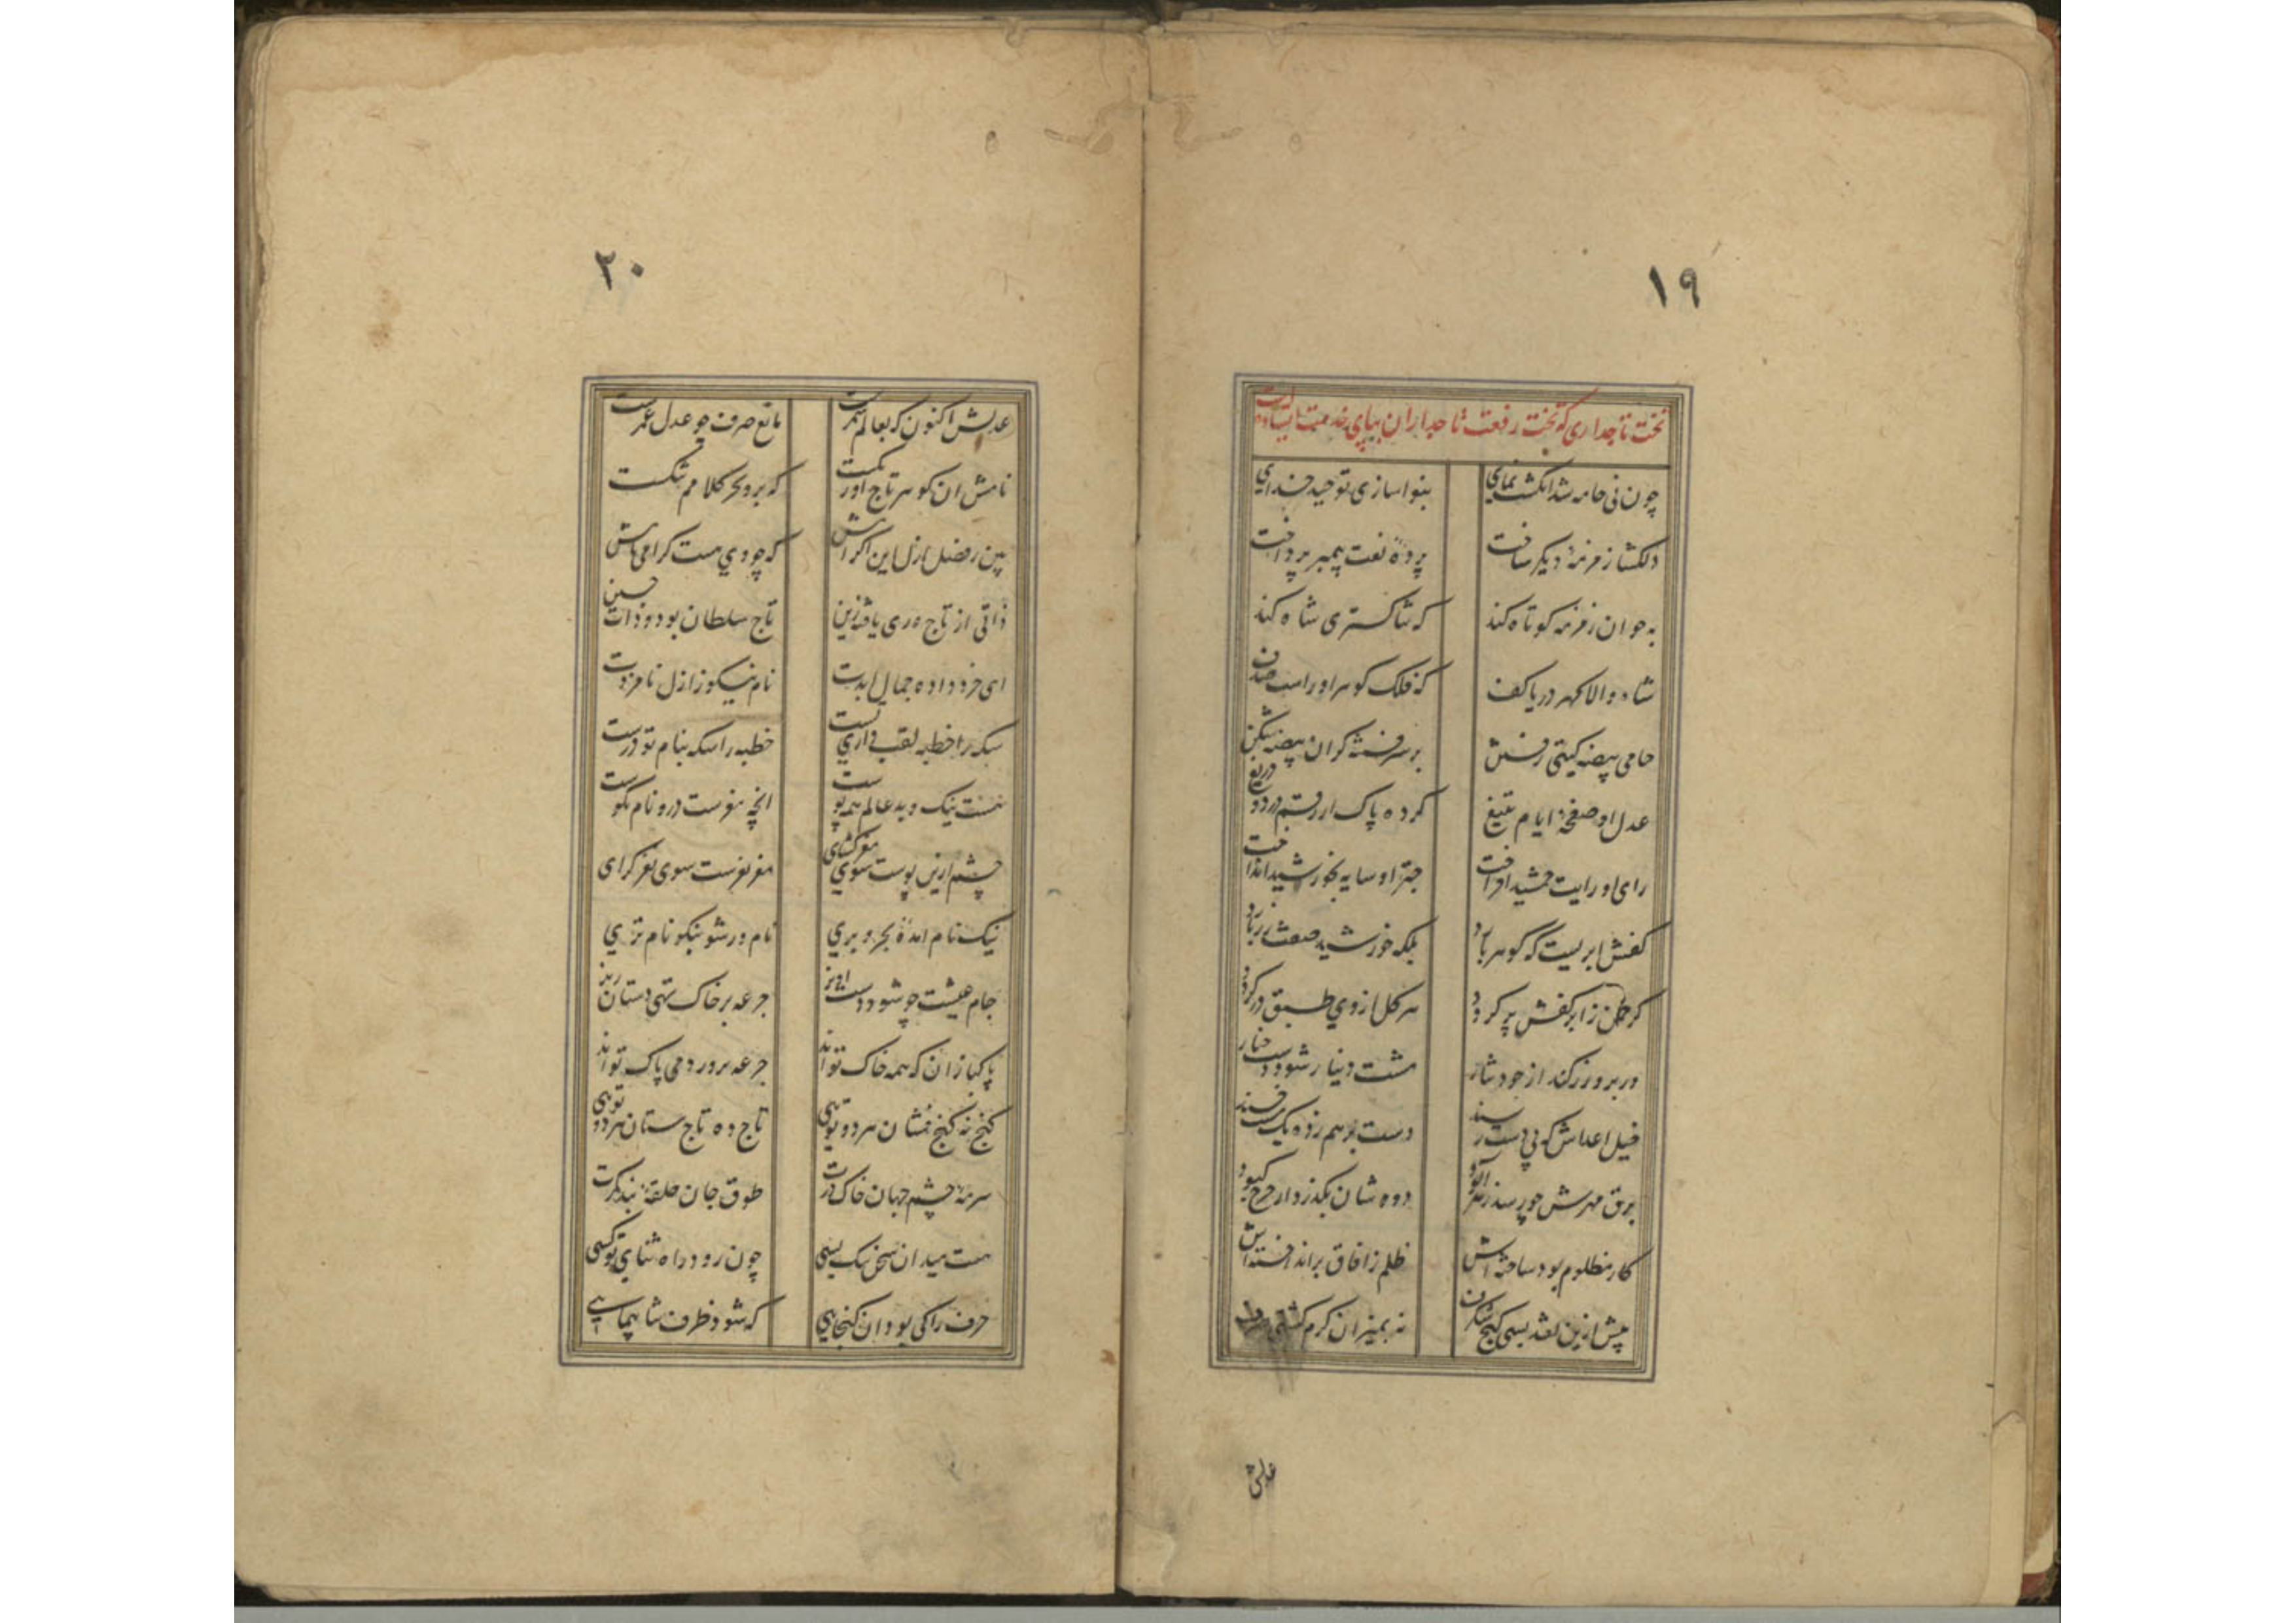 ۱۹
تخت تاجداری که تخت رفعت تاجداران بپای خدمت ایستاده است
چون نی خامه شد انگشت نمای بنوا سازی توحید خدای
دلکشا زمزمهٔ دیکر ساخت پردهٔ نعت پیمبر پرداخت
به جوان زمزمه کوتاه کند که ثنا کستری شاه کند
شاه والا کهر دریا کف که فلک کوهر او راست صدف
حامی بیضه کیتی زفتن بر سر فتنه کران بیضه شکن
عدل او صفحهٔ ایام بتیغ کرده پاک از رقم درد و دریغ
رای او رایت جمشید افراخت چتر او سایه بخورشید انداخت
کفش ابریست که کوهر بارد بلکه خورشید صفت زر بارد
کر چمن ز ابر کفش پر کردد هر کل از وی طبق زر کردد
ور برو زر کند از جود نثار مشت دینار شود دست چنار
خیل اعداش که بی دست رسند دست بر هم زده یک مکسند
برق قهرش چو رسد زهر آلود دوده شان بکذرد از چرخ کبود
کار مظلوم بود ساخته اش ظلم ز آفاق برانداخته اش
پیش ازین نقد بسی کنج شکرف نه بمیزان کرم کشتی صرف
عدلش
۲۰
عدلش اکنون که بعالم سمرست مانع صرف چو عدل عمرست
نامش ان کوهر تاج اور کست که برو بحر کلامم شکست
بین ز فضل ازل این اکرامش که چو وی هست کرامی نامش
ذاتی از تاج وری یافته زین تاج سلطان بود و ذات حسین
ای خرد داده جمال ابدت نام نیکو ز ازل نامزدت
سکه را خطبه لقب داری تست خطبه را سکه بنام تو درست
نیست نیک و بد عالم همه پوست انچه مغزست درو نام نکوست
چشم ازین پوست سوی مغز کشای مغز نغزست سوی نغز کرای
نیک نام امدهٔ بحر و بری نام ور شو بنکو نام تری
جام عیشت چو شود دست اویز جرعه بر خاک تهی دستان ریز
پاکبازان که همه خاک تو اند جرعه پرورد می پاک تو اند
کنج نه کنج فشان هر دو تویی تاج ده تاج ستان هر دو تویی
سرمهٔ چشم جهان خاک درت طوق جان حلقهٔ بند کمرت
هست میدان سخن تنک بسی چون رود راه ثنای تو کسی
حرف را کی بود ان کنجایی که شود ظرف ثنا پیمایی